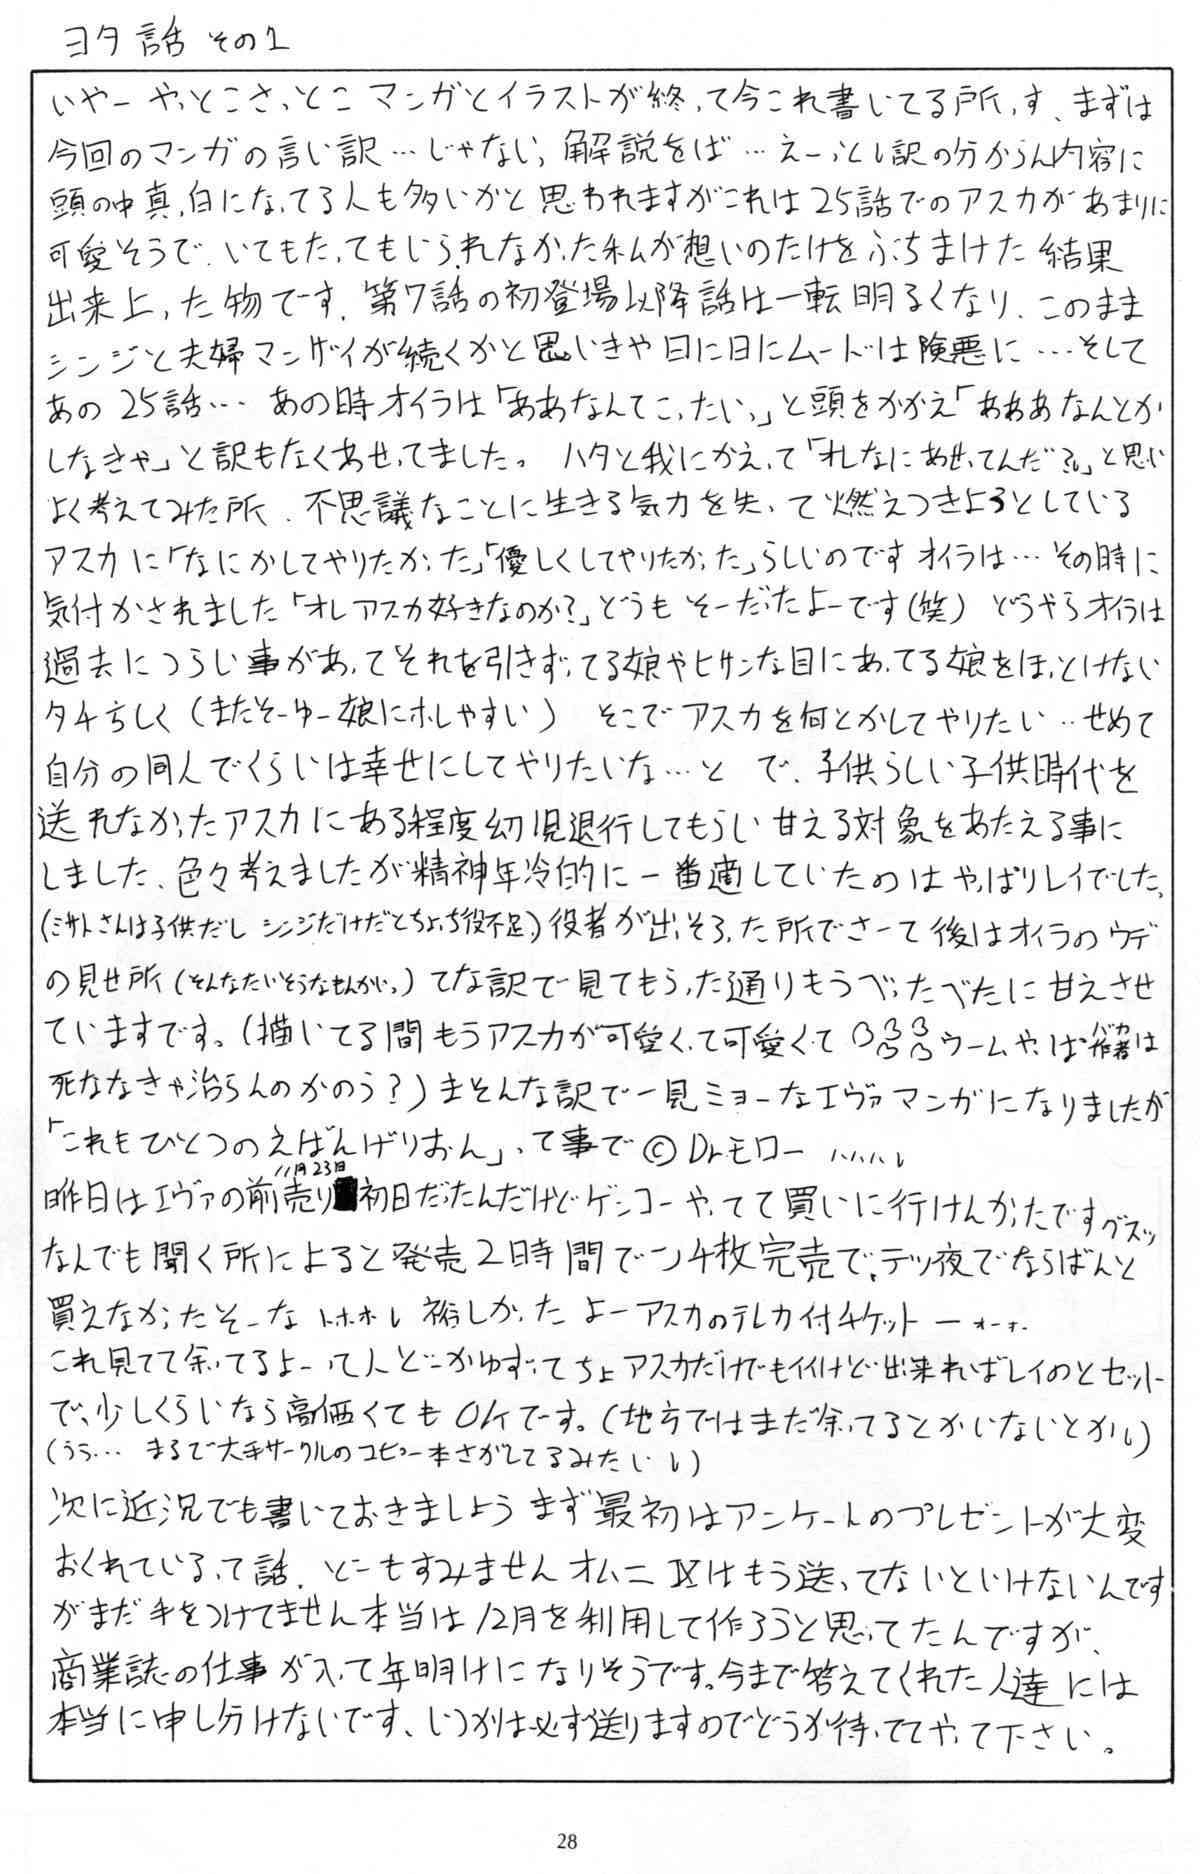 ヨタ話 その1
いやー やっとこさっとこ マンガとイラストが終って今これ書いてる所っす、まずは
今回のマンガの言い訳…じゃない、解説をば…えーっとい訳の分からん内容に
頭の中真っ白になってる人も多いかと思われますがこれは25話でのアスカがあまりに
可愛そうで、いてもたってもいられなかった私が想いのたけをぶちまけた結果
出来上った物です、第7話の初登場以降話は一転明るくなり、このまま
シンジと夫婦マンザイが続くかと思いきや日に日にムードは険悪に…そして
あの25話…あの時オイラは「ああなんてこったいっ」と頭をかかえ「あああなんとか
しなきゃ」と訳もなくあせってました。ハタと我にかえって「オレなにあせってんだ?」と思い
よく考えてみた所、不思議なことに生きる気力を失って燃えつきようとしている
アスカに「なにかしてやりたかった」「優しくしてやりたかった」らしいのですオイラは…その時に
気付かされました「オレアスカ好きなのか?」どうもそーだったよーです(笑) どうやらオイラは
過去につらい事があってそれを引きずってる娘やヒサンな目にあってる娘をほっとけない
タチらしく(またそーゆー娘にホレやすい) そこでアスカを何とかしてやりたい‥せめて
自分の同人でくらいは幸せにしてやりたいな…と で、子供らしい子供時代を
送れなかったアスカにある程度幼児退行してもらい甘える対象をあたえる事に
しました、色々考えましたが精神年冷的に一番適していたのはやっぱりレイでした、
(ミサトさんは子供だし シンジだけだとちょっち役不足)役者が出そろった所でさーて後はオイラのウデ
の見せ所(そんなたいそうなもんかいっ)てな訳で見てもらった通りもうべったべたに甘えさせ
ていますです。(描いてる間もうアスカが可愛くって可愛くて ウームやっぱバカ作者は
死ななきゃ治らんのかのう?)まそんな訳で一見ミョーなエヴァマンガになりましたが
「これもひとつのえばんげりおん」って事で ©Dr.モロー
昨日は11月23日エヴァの前売り初日だったんだけどゲンコーやってて買いに行けんかったですグスッ
なんでも聞く所によると発売2時間で一つ4枚完売で、テツ夜でならばんと
買えなかったそーな トホホホ 欲しかったよーアスカのテレカ付チケットーオーオー
これ見てて余ってるよーって人どーかゆずってちょ アスカだけでもイイけど出来ればレイのとセット
で、少しくらいなら高価くてもOKです。(地方ではまだ余ってるとかいないとか)
(うう… まるで大手サークルのコピー本さがしてるみたい)
次に近況でも書いておきましょう まず最初はアンケートのプレゼントが大変
おくれているって話、どーもすみません オムニIXはもう送ってないといけないんです
がまだ手をつけてません本当は12月を利用して作ろうと思ってたんですが、
商業誌の仕事が入って年明けになりそうです。今まで答えてくれた人達には
本当に申し分けないです、いつかは必ず送りますのでどうか待っててやって下さい。
28